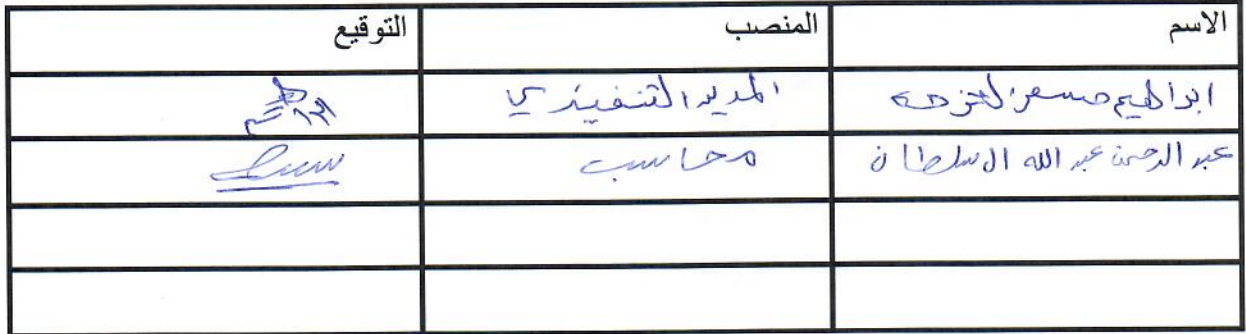 الاسم المنصب التوقيع
ابراهيم المدير التنفيذي
عبد الرحمن عبد الله السلطان محاسب